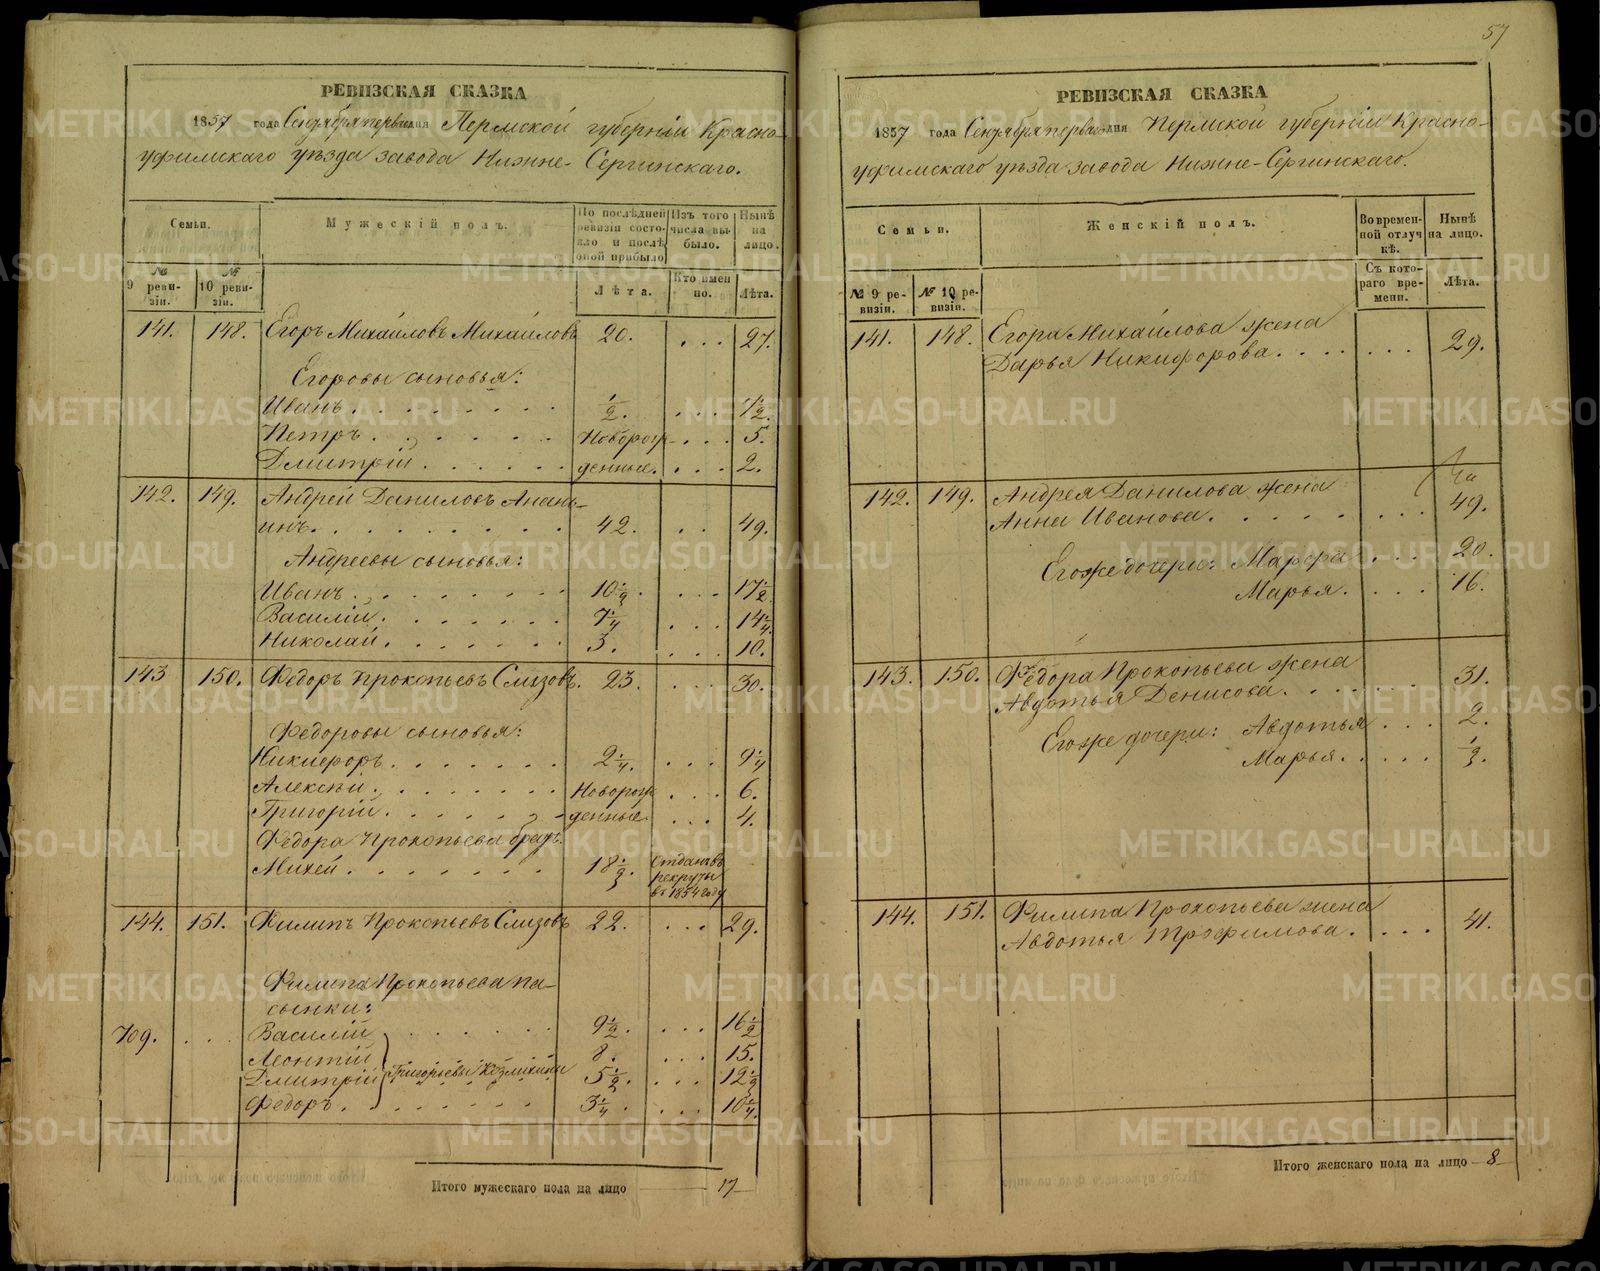 57
РЕВИЗСКАЯ СКАЗКА
1857 года Сентября первого дня Пермской губерніи Красно-
уфимскаго уѣзда завода Нижне-Сергинскаго.
Семьи. Мужескій полъ. По послѣдней ревизіи состояло и послѣ оной прибыло Изъ того числа выбыло. Нынѣ на лицо.
№ 9 ревизіи. № 10 ревизіи. Лѣта. Кто именно. Лѣта.
141. 148. Егоръ Михайловъ Михайловъ 20. ... 27.
Егоровы сыновья:
Иванъ 1/2. ... 7 1/2.
Петръ Новорож- ... 5.
Дмитрій денные. ... 2.
142. 149. Андрей Даниловъ Анань-
инъ 42. .. 49.
Андреевы сыновья:
Иванъ 10 1/2. ... 17 1/2
Василій 7 1/4 ... 14 1/4.
Николай 3. ... 10.
143 150. Федоръ Прокопьевъ Слизовъ. 23. ... 30.
Федоровы сыновья:
Никифоръ 2 1/4. ... 9 1/4
Алексѣй Новорож ... 6.
Григорій денные. ... 4.
Федора Прокопьева братъ
Михей 18 1/2. Отданъ въ
рекруты
въ 1854 году
144. 151. Филипъ Прокопьевъ Слизовъ 22. ... 29.
Филипа Прокопьева па-
сынки:
709. ... Василій 9 1/2. ... 16 1/2
Леонтій 8. ... 15.
Дмитрій Григорьевы Козмихины 5 1/2. ... 12 1/2
Федоръ 3 1/4. ... 10 1/4.
Итого мужескаго пола на лицо 17
РЕВИЗСКАЯ СКАЗКА
1857 года Сентября первого дня Пермской губерніи Красно-
уфимскаго уѣзда завода Нижне-Сергинскаго.
Семьи. Женскій полъ. Во временной отлучкѣ. Нынѣ на лицо.
№ 9 ревизіи. № 10 ревизіи. Съ котораго времени. Лѣта.
141. 148. Егора Михайлова жена
Дарья Никифорова. ... 29.
142. 149. Андрея Данилова жена
Анна Иванова. ... 49.
Егоже дочери: Марфа ... 20.
Марья. ... 16.
143. 150. Федора Прокопьева жена
Авдотья Денисова. ... 31.
Егоже дочери: Авдотья ... 2.
Марья. ... 1/2.
144. 151. Филипа Прокопьева жена
Авдотья Трофимова. ... 41.
Итого женскаго пола на лицо 8
METRIKI.GASO-URAL.RU